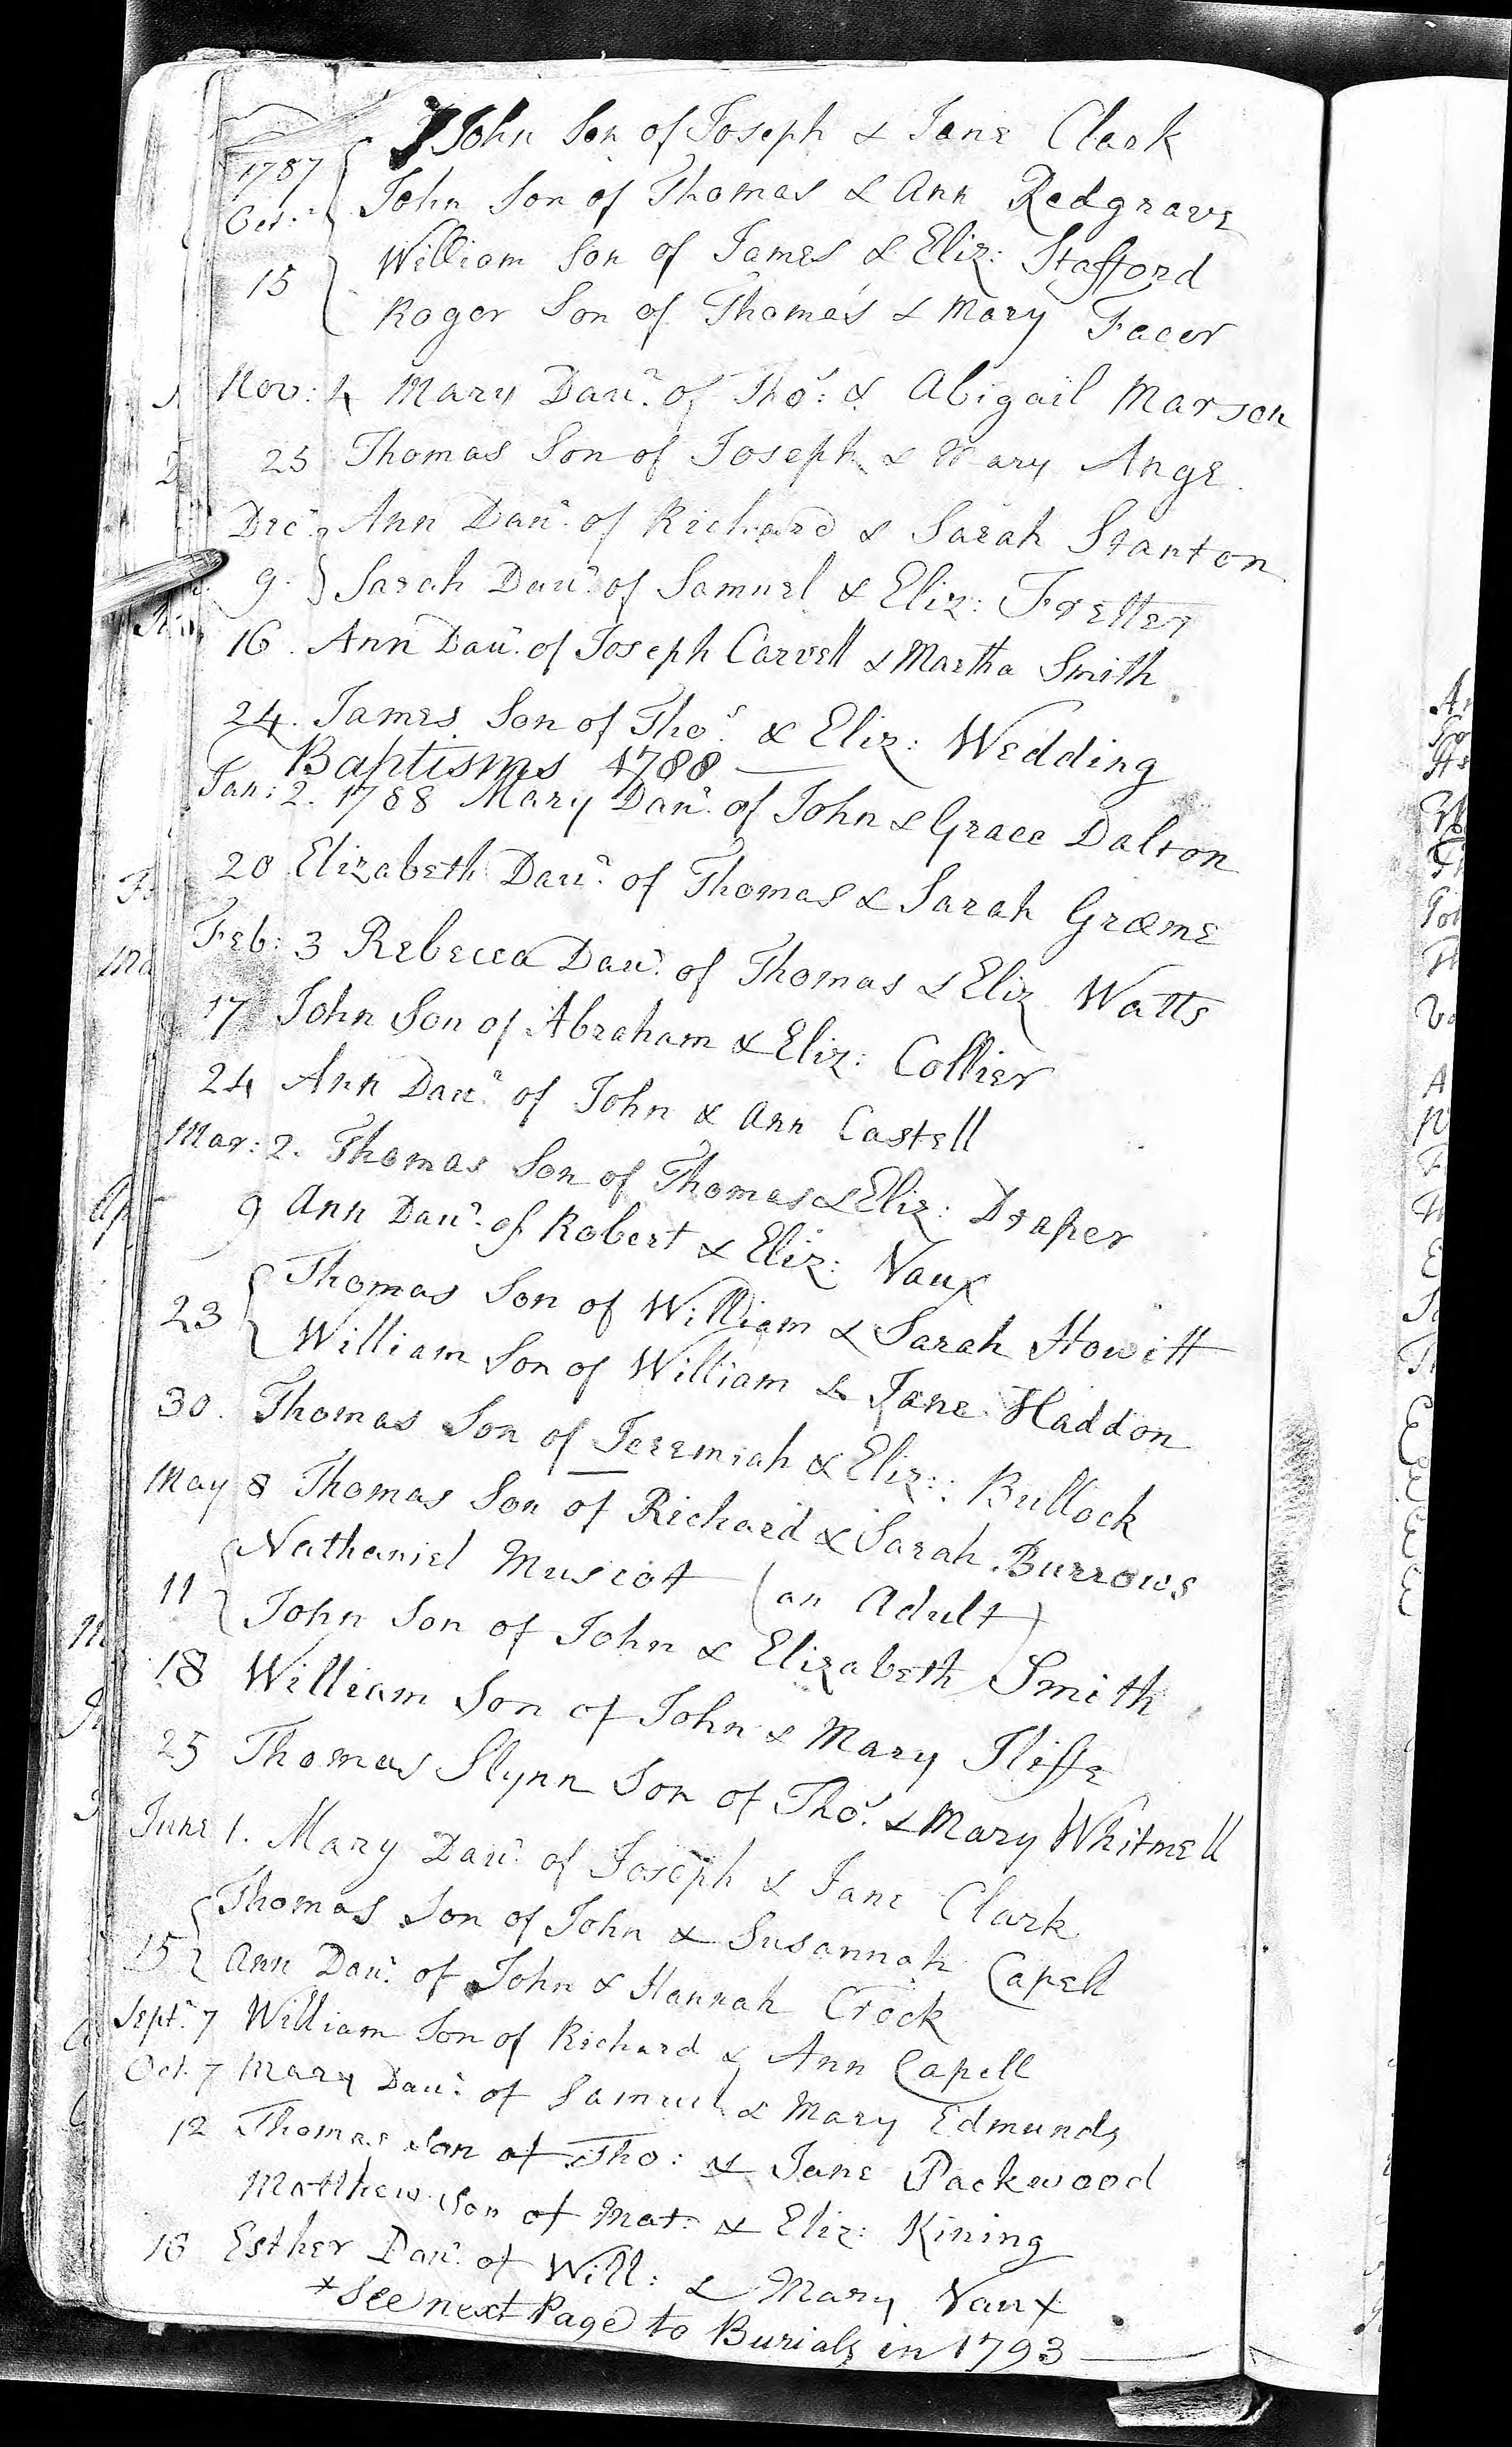 John Son of Joseph & Jane Clark
1787 John Son of Thomas & Ann Redgrave
Oct:
William Son of James & Eliz: Stafford
15
Roger Son of Thomas & Mary Facer
Nov: 4 Mary Daur. of Thos: & Abigail Marson
25 Thomas Son of Joseph & Mary Ange
Decr. Ann Daur. of Richard & Sarah Stanton
9. Sarah Daur. of Samuel & Eliz: Fretter
16. Ann Daur. of Joseph Carvell & Martha Smith
24. James Son of Thos. & Eliz: Wedding
Baptisms 1788
Jan: 2. 1788 Mary Daur. of John & Grace Dalton
20 Elizabeth Daur. of Thomas & Sarah Græme
Feb: 3 Rebecca Daur. of Thomas & Eliz Watts
17 John Son of Abraham & Eliz: Collier
24 Ann Daur. of John & Ann Castell
Mar: 2. Thomas Son of Thomas & Eliz: Draper
9 Ann Daur. of Robert & Eliz: Vaux
Thomas Son of William & Sarah Howitt
23
William Son of William & Jane Haddon
30. Thomas Son of Jeremiah & Eliz: Bullock
May 8 Thomas Son of Richard & Sarah Burrows
Nathaniel Muscot (an Adult)
11
John Son of John & Elizabeth Smith
18 William Son of John & Mary Iliffe
25 Thomas Slynn Son of Thos. & Mary Whitmell
June 1. Mary Daur. of Joseph & Jane Clark
Thomas Son of John & Susannah Capell
15 Ann Daur. of John & Hannah Crock
Septr. 7 William Son of Richard & Ann Capell
Oct. 7 Mary Daur. of Samuel & Mary Edmunds
12 Thomas Son of Tho: & Jane Packwood
Matthew Son of Mat: & Eliz: Kining
18 Esther Daur. of Will: & Mary Vaux
*See next Page to Burials in 1793